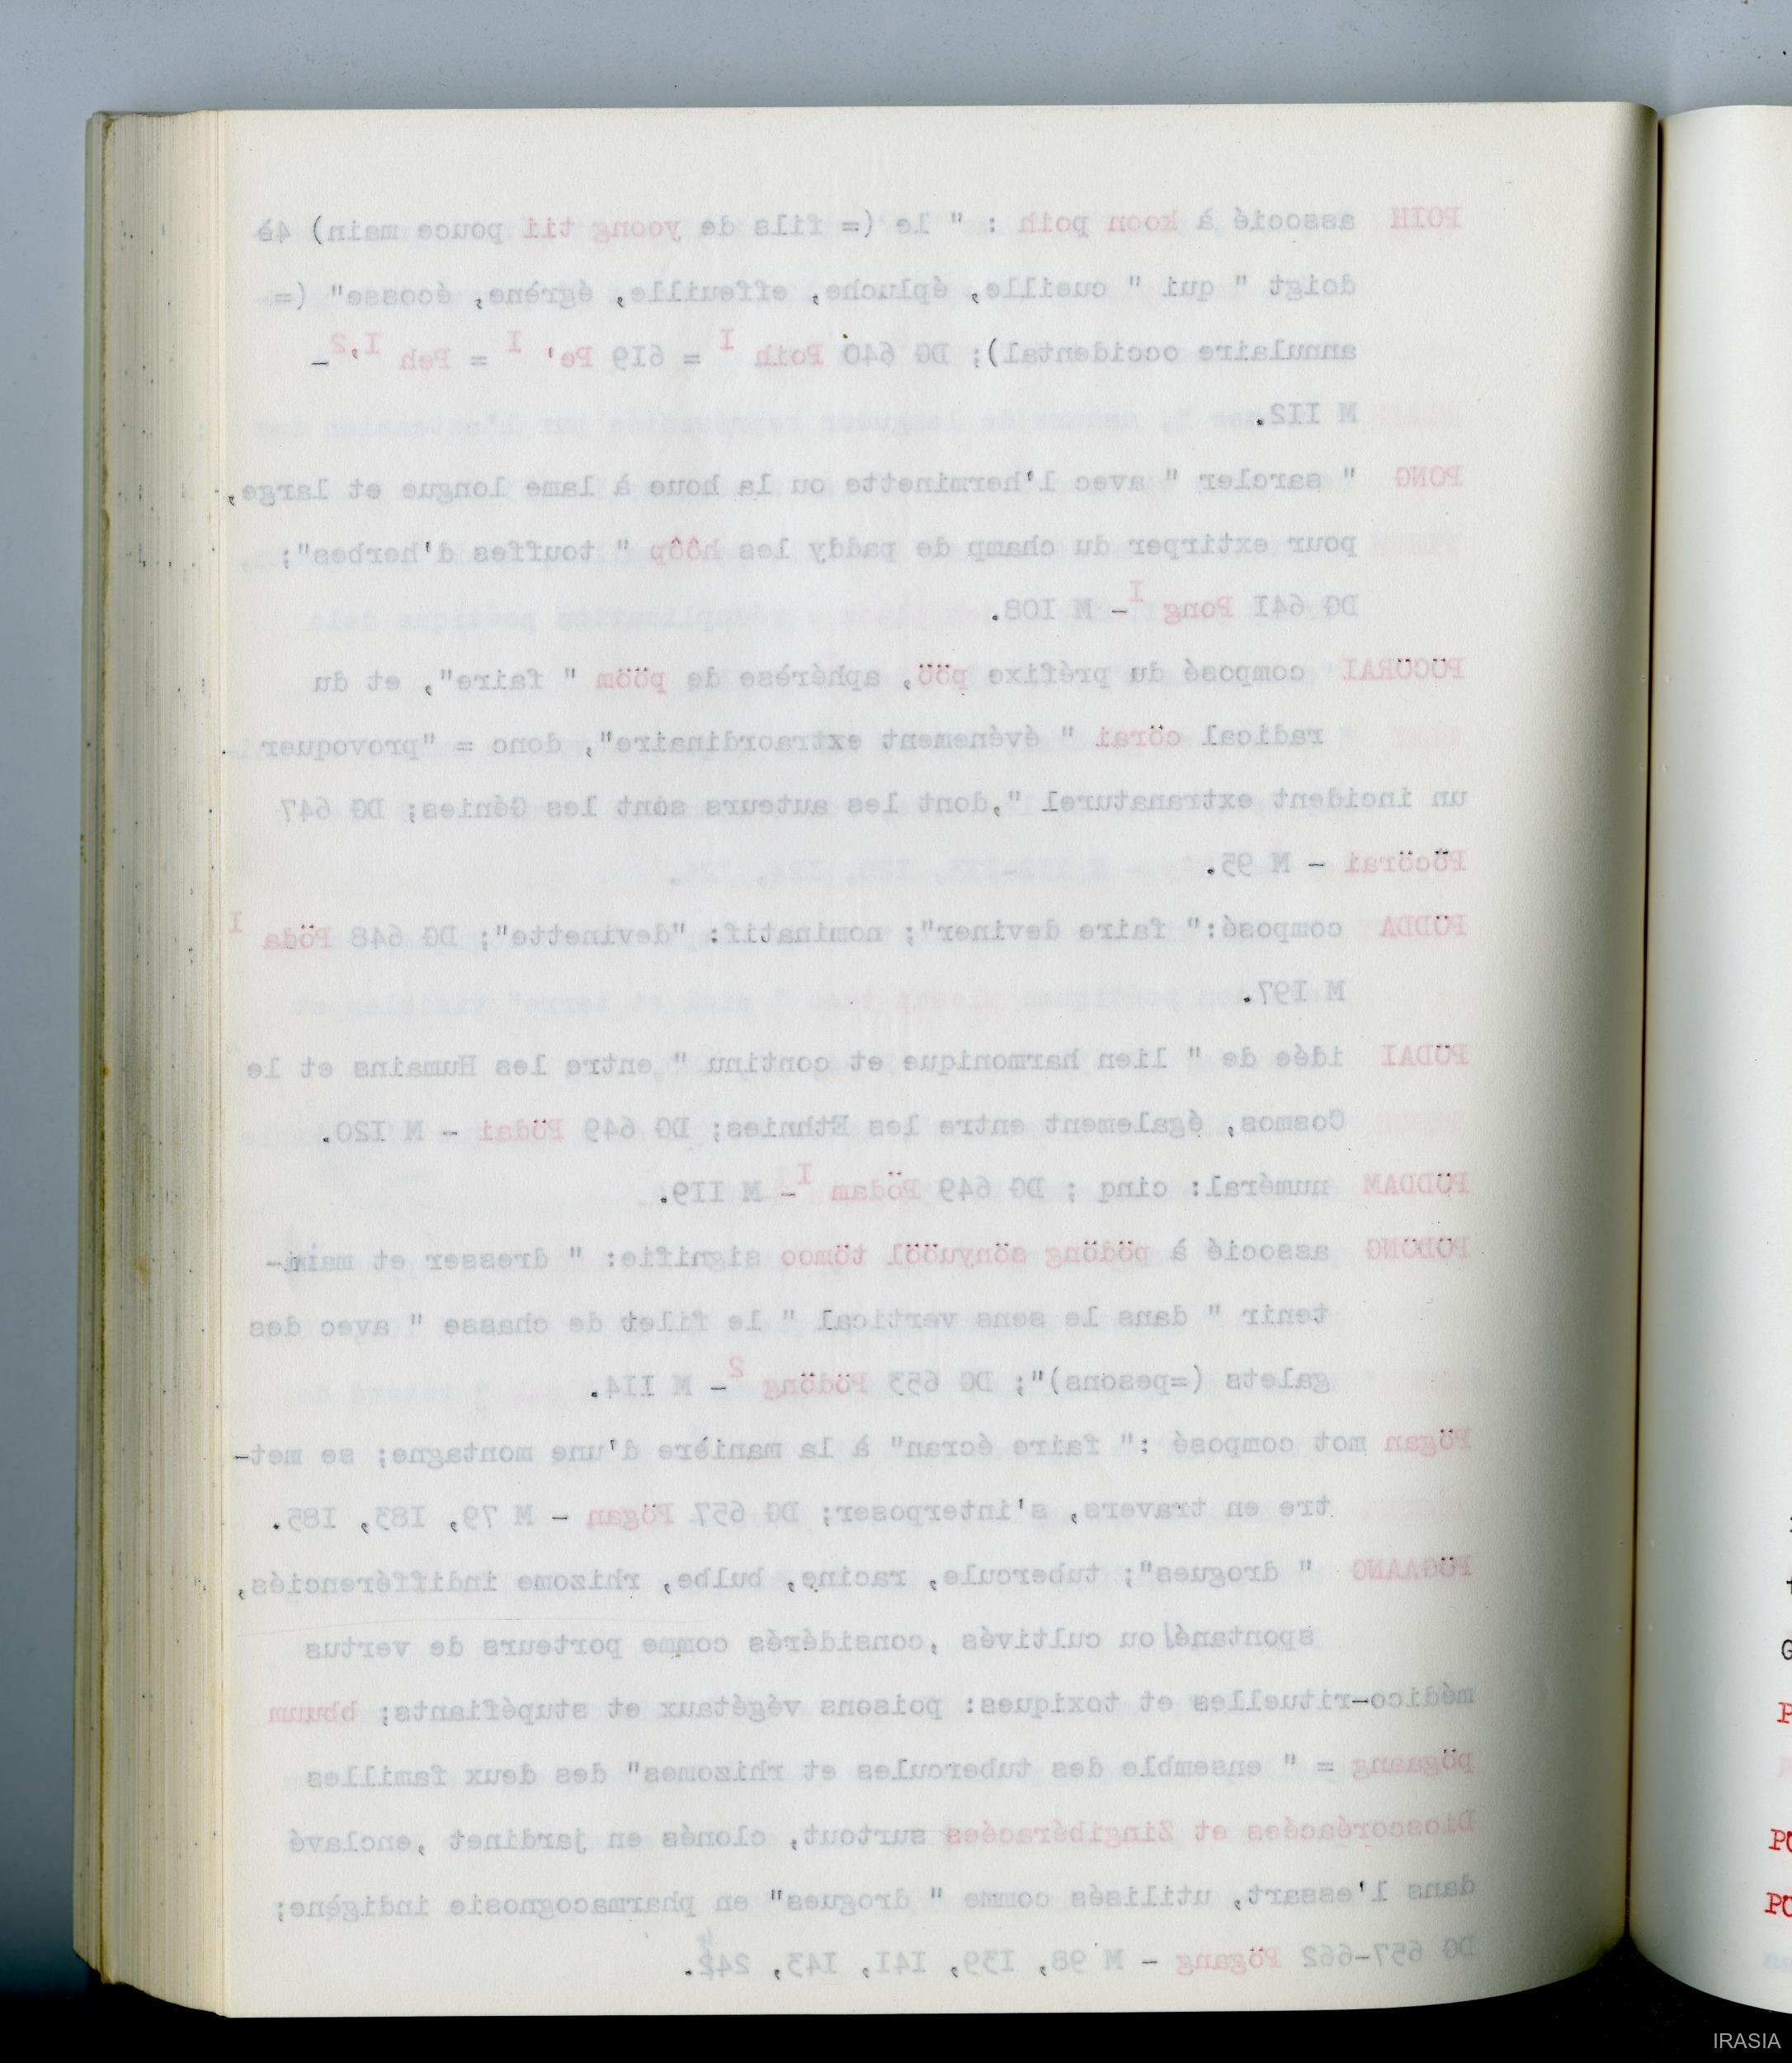 POIH associé à koon poih : " le (= fils de yoong tii pouce main) 4è
doigt " qui " cueille, épluche, effeuille, égrène, écosse" (=
annulaire occidental); DG 640 Poih I = 6I9 Pe' I = Peh I,2-
M II2.
PONG " sarcler " avec l'herminette ou la houe à lame longue et large,
pour extirper du champ de paddy les hôôp " touffes d'herbes";
DG 64I Pong I- M I08.
PÖCÖRAI composé du préfixe pöö, aphérèse de pööm " faire", et du
radical cörai " événement extraordinaire", donc = "provoquer
un incident extranaturel ",dont les auteurs sont les Génies; DG 647
Pöcörai - M 95.
PÖDDA composé:" faire deviner"; nominatif: "devinette"; DG 648 Pöda I
M I97.
PÖDAI idée de " lien harmonique et continu " entre les Humains et le
Cosmos, également entre les Ethnies; DG 649 Pödai - M I20.
PÖDDAM numéral: cinq ; DG 649 Pödam I- M II9.
PÖDÖNG associé à pödöng sönyuööl tömoo signifie: " dresser et main-
tenir " dans le sens vertical " le filet de chasse " avec des
galets (=pesons)"; DG 653 Pödöng 2- M II4.
Pögan mot composé :" faire écran" à la manière d'une montagne; se met-
tre en travers, s'interposer; DG 657 Pögan - M 79, I83, I85.
PÖGAANG " drogues"; tubercule, racine, bulbe, rhizome indifférenciés,
spontané/ou cultivés ,considérés comme porteurs de vertus
médico-rituelles et toxiques: poisons végétaux et stupéfiants; bbuum
pögaang = " ensemble des tubercules et rhizomes" des deux familles
Dioscoréacées et Zingibéracées surtout, clonés en jardinet ,enclavé
dans l'essart, utilisés comme " drogues" en pharmacognosie indigène;
DG 657-662 Pögang - M 98, I39, I4I, I43,
G
IRASIA